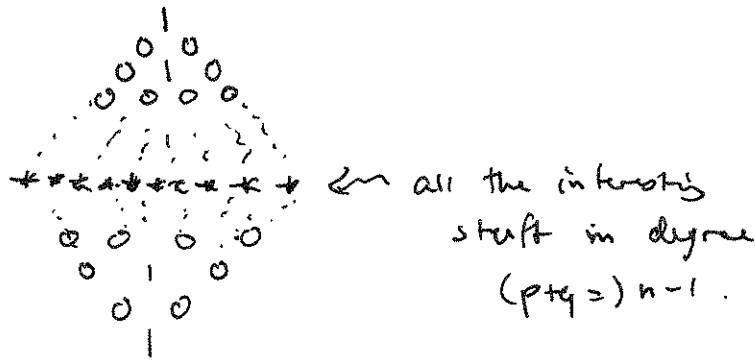 1
0 0
0 1 0
0 0 0 0
* * * * * * * * * * ← all the interesting
stuff in degree
(p+q =) n-1.
0 0 0 0
0 1 0
0 0
1